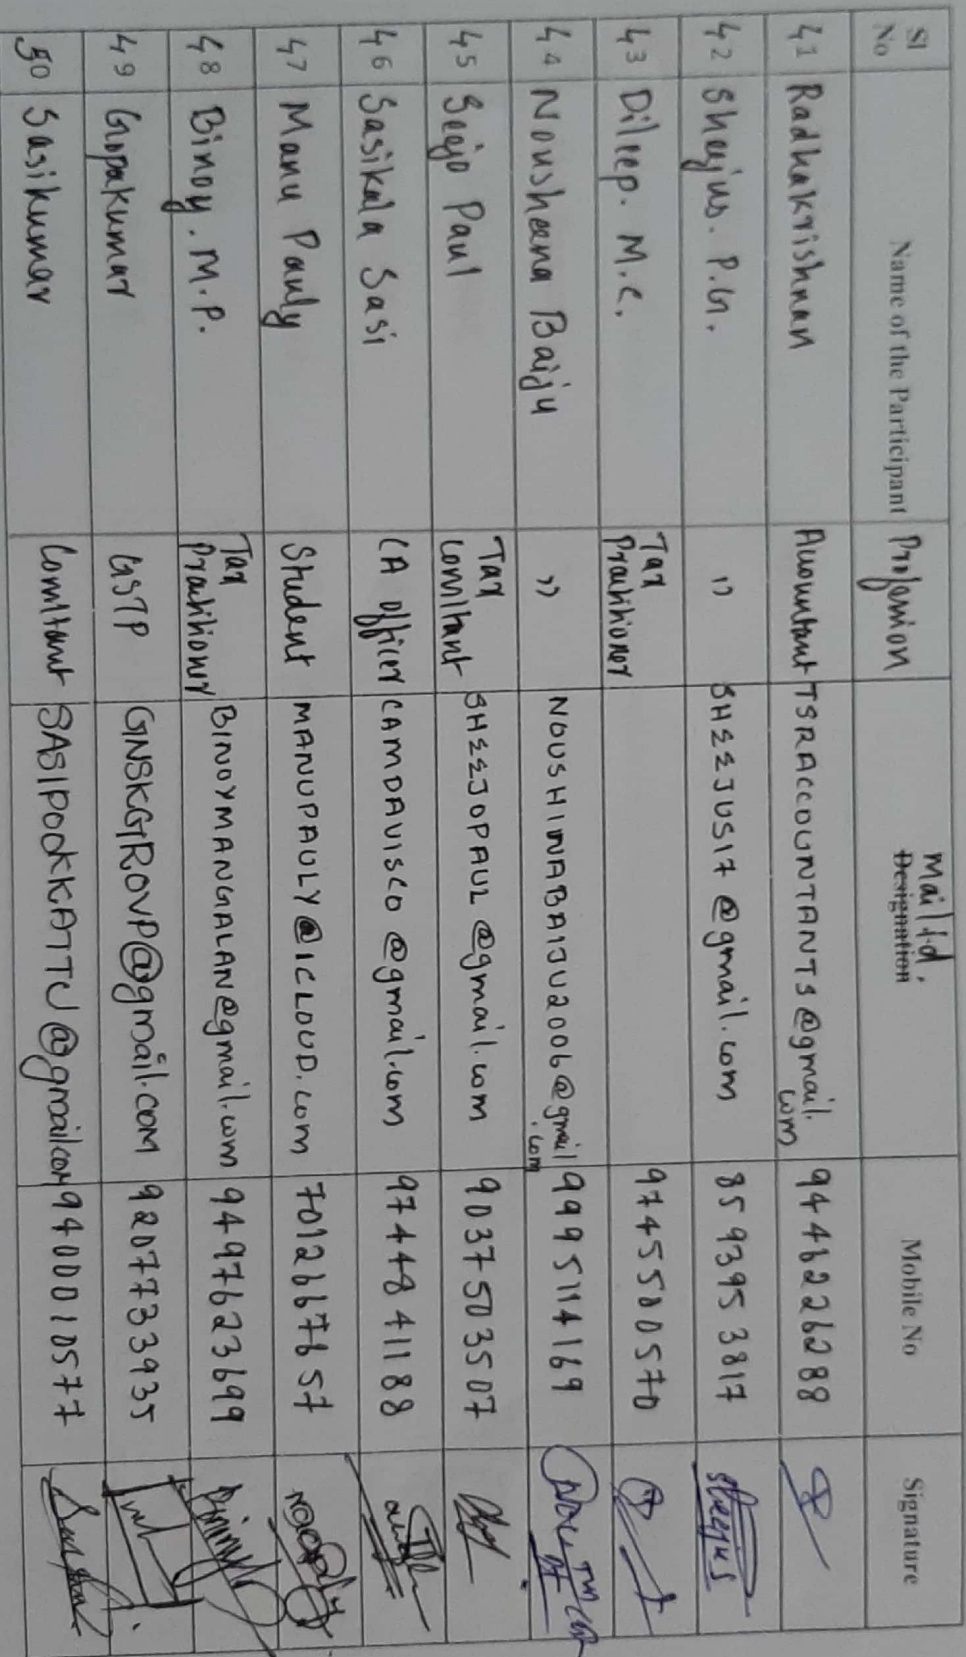 Sl No Name of the Participant Profession Mail I.d. Designation Mobile No Signature
41 Radhakrishnan Accountant TSRACCOUNTANTS@gmail.com 9446226288
42 Sheejus. P.G. " SHEEJUS17@gmail.com 8593953817 Sheejus
43 Dileep. M.C. Tax Practitioner 9745500570
44 Nousheena Baiju " NOUSHINABAIJU2006@gmail.com 9995114169
45 Seejo Paul Tax Consltant SHEEJOPAUL@gmail.com 9037503507
46 Sasikala Sasi CA Officer CAMDAVISCO@gmail.com 9744841188
47 Manu Pauly Student MANUPAULY@ICLOUD.com 7012667657
48 Binoy. M.P. Tax Practitioner BINOYMANGALAN@gmail.com 9497623699
49 Gopakumar GSTP GNSKGROVP@gmail.com 9207733935
50 Sasikumar Consltant SASIPOOKKATTU@gmail.com 9400010577